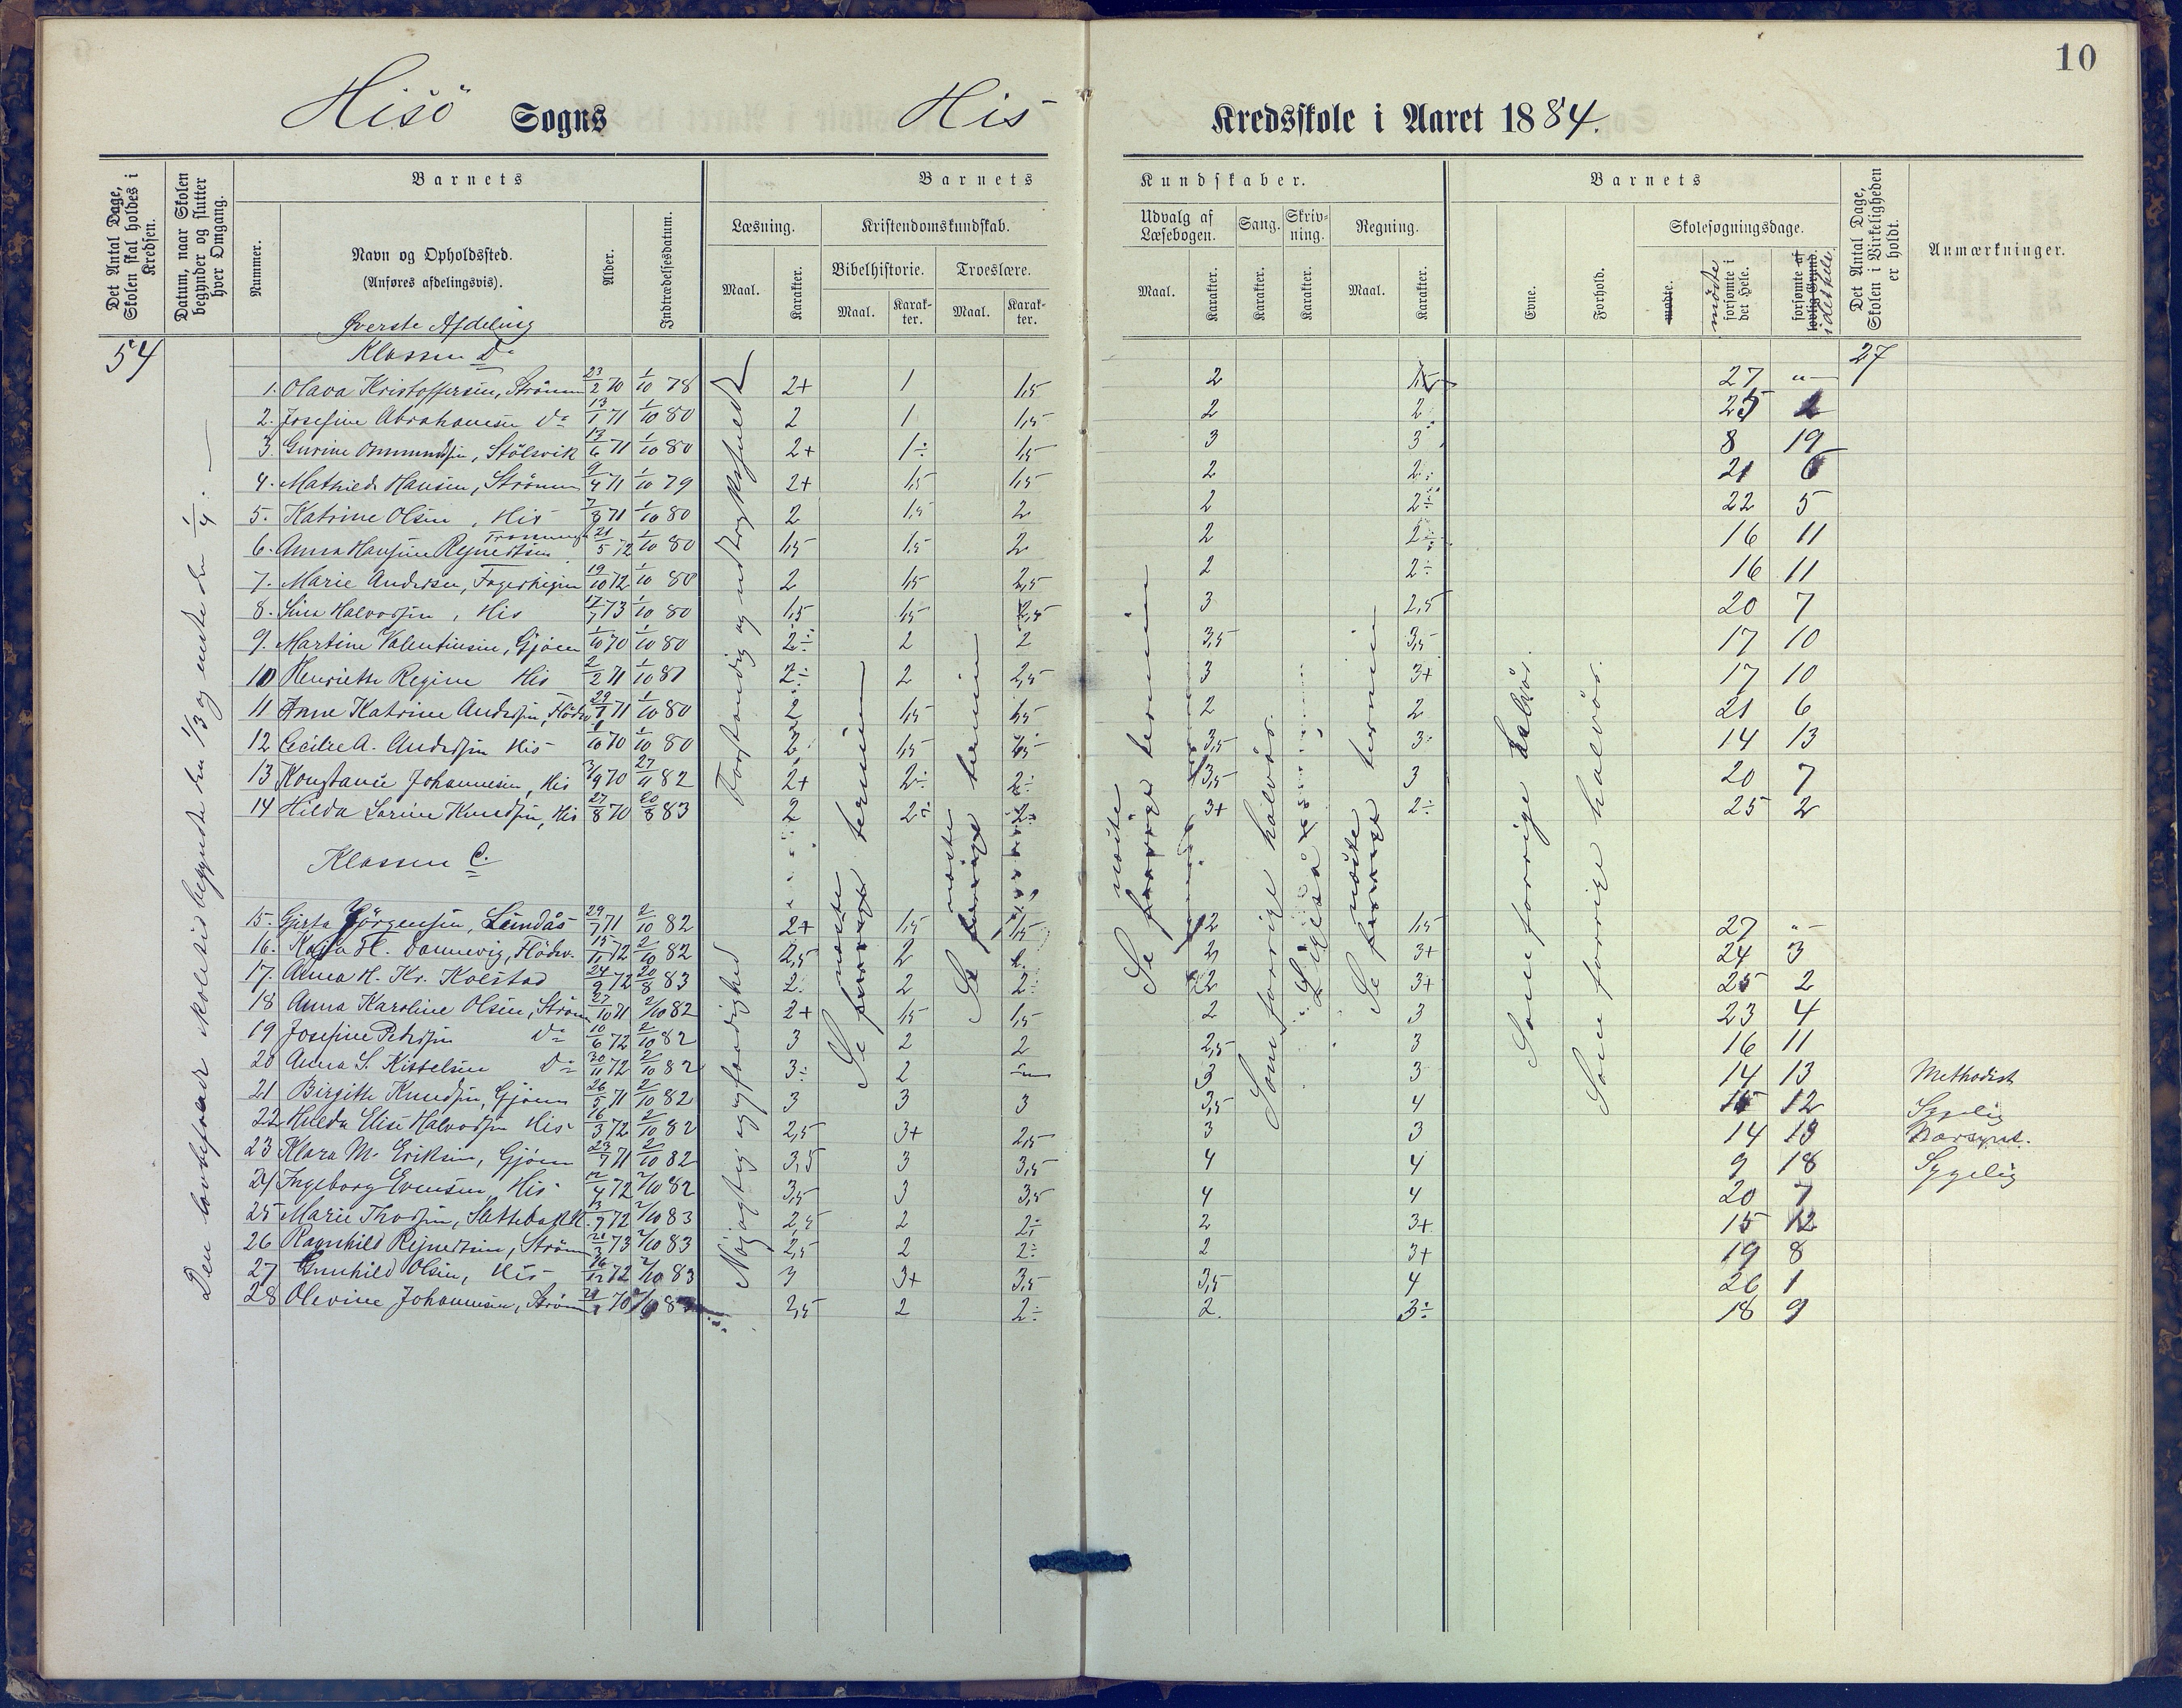 10
Hisö Sogns His Kredsskole i Aaret 1884.
Det Antal Dage, Skolen skal holdes i Kredsen.
Datum, naar Skolen begynder og slutter hver Omgang.
Barnets
Nummer.
Navn og Opholdssted.
(Anføres afdelingsvis).
Alder.
Indtrædelsesdatum.
Barnets Kundskaber.
Læsning.
Maal.
Karakter.
Kristendomskundskab.
Bibelhistorie.
Maal.
Karakter.
Troeslære.
Maal.
Karakter.
Udvalg af Læsebogen.
Maal.
Karakter.
Sang.
Karakter.
Skrivning.
Karakter.
Regning.
Maal.
Karakter.
Barnets
Evne.
Forhold.
Skolesøgningsdage.
mødte.
mödte
forsømte i det Hele.
forsømte af lovlig Grund.
i det hele
Det Antal Dage, Skolen i Virkeligheden er holdt.
Anmærkninger.
Øverste Afdeling
54 Klassen D. 27
1. Olava Kristoffersen, Strömm 23/2 70 1/10 78 2+ 1 1,5 2 1,5 27 "
2. Josefine Abrahamsen do 13/1 71 1/10 80 2 1 1,5 2 2 25 2
3. Gurine Ommundsen, Stölsvik 17/6 71 1/10 80 2+ 1÷ 1,5 3 3 8 19
4. Mathilde Hansen, Strömm 9/4 71 1/10 79 2+ 1,5 1,5 2 2÷ 21 6
5. Katrine Olsen, His 7/8 71 1/10 80 2 1,5 2 2 2÷ 22 5
6. Anna Hansine Rejnertsen 21/5 72 1/10 80 1,5 1,5 2 2 2÷ 16 11
7. Marie Andersen, 19/10 72 1/10 80 2 1,5 2,5 2 2÷ 16 11
8. Sina Halvorsen, His 17/7 73 1/10 80 1,5 1,5 2,5 3 2,5 20 7
9. Martine Valentinsen, Gjöen 1/10 70 1/10 80 2÷ 2 2 3,5 3,5 17 10
10 Henriette Regine His 2/2 71 1/10 81 2÷ 2 2,5 3 3+ 17 10
11 Anne Katrine Andersen, Flödv. 29/1 71 1/10 80 2 1,5 1,5 2 2 21 6
12 Cecilie A. Andersen His 1/10 70 1/10 80 2 1,5 3,5 3÷ 14 13
13 Konstance Johannesen, His 3/9 70 27/11 82 2+ 2÷ 2÷ 3,5 3 20 7
14 Hilda Lorine Knudsen, His 27/8 70 20/8 83 2 2÷ 2÷ 3+ 2÷ 25 2
Klassen C.
15. Gjerta Jörgensen, Lundås 29/7 71 2/10 82 2+ 1,5 1,5 2 1,5 27 "
16. Kaja H. Dannevig, Flödev. 15/11 72 2/10 82 2,5 2 2 3+ 24 3
17. Anna H. Kr. Kolstad 24/9 72 20/8 83 2 2 2÷ 2 3+ 25 2
18 Anna Karoline Olsen, Ström 27/10 71 2/10 82 2+ 1,5 1,5 2 3 23 4
19 Josefine Pedersen do 10/6 72 2/10 82 3 2 2 2,5 3 16 11
20 Anna S. Kittelsen Do 30/11 72 2/10 82 3÷ 2 " 3 3 14 13 Methodist
21 Birgitte Knudsen, Gjöen 26/5 71 2/10 82 3 3 3 3,5 4 15 12 Sygelig
22 Hulda Elise Halvorsen His 16/3 72 2/10 82 2,5 3+ 2,5 3 3 14 13
23 Klara M. Eriksen, Gjöen 23/7 71 2/10 82 3,5 3 3,5 4 4 9 18 Sygelig
24 Ingeborg Evensen, His 12/4 72 2/10 82 3,5 3 3,5 4 4 20 7
25 Marie Thorsen, Slettebakk. 13/9 72 2/10 83 2,5 2 2÷ 2 3+ 15 12
26 Ragnhild Rejnertsen, Ström 21/3 73 2/10 83 2,5 2 2÷ 2 3+ 19 8
27 Gunhild Olsen, His 16/12 72 2/10 83 3 3+ 3,5 3,5 4 26 1
28 Olevine Johannesen, Ström 70 2,5 2 2÷ 2 3÷ 18 9
Den lovbefalede skoletid begyndte den 1/3 og endte den 1/4.
Forstandig og udtryksfuld
Nöjagtig og færdighed
Se næste termin
Se næste termin
Se næste termin
Som forrige halvår.
Ligeså
Se næste termin
Som forrige halvår.
Som forrige halvår.